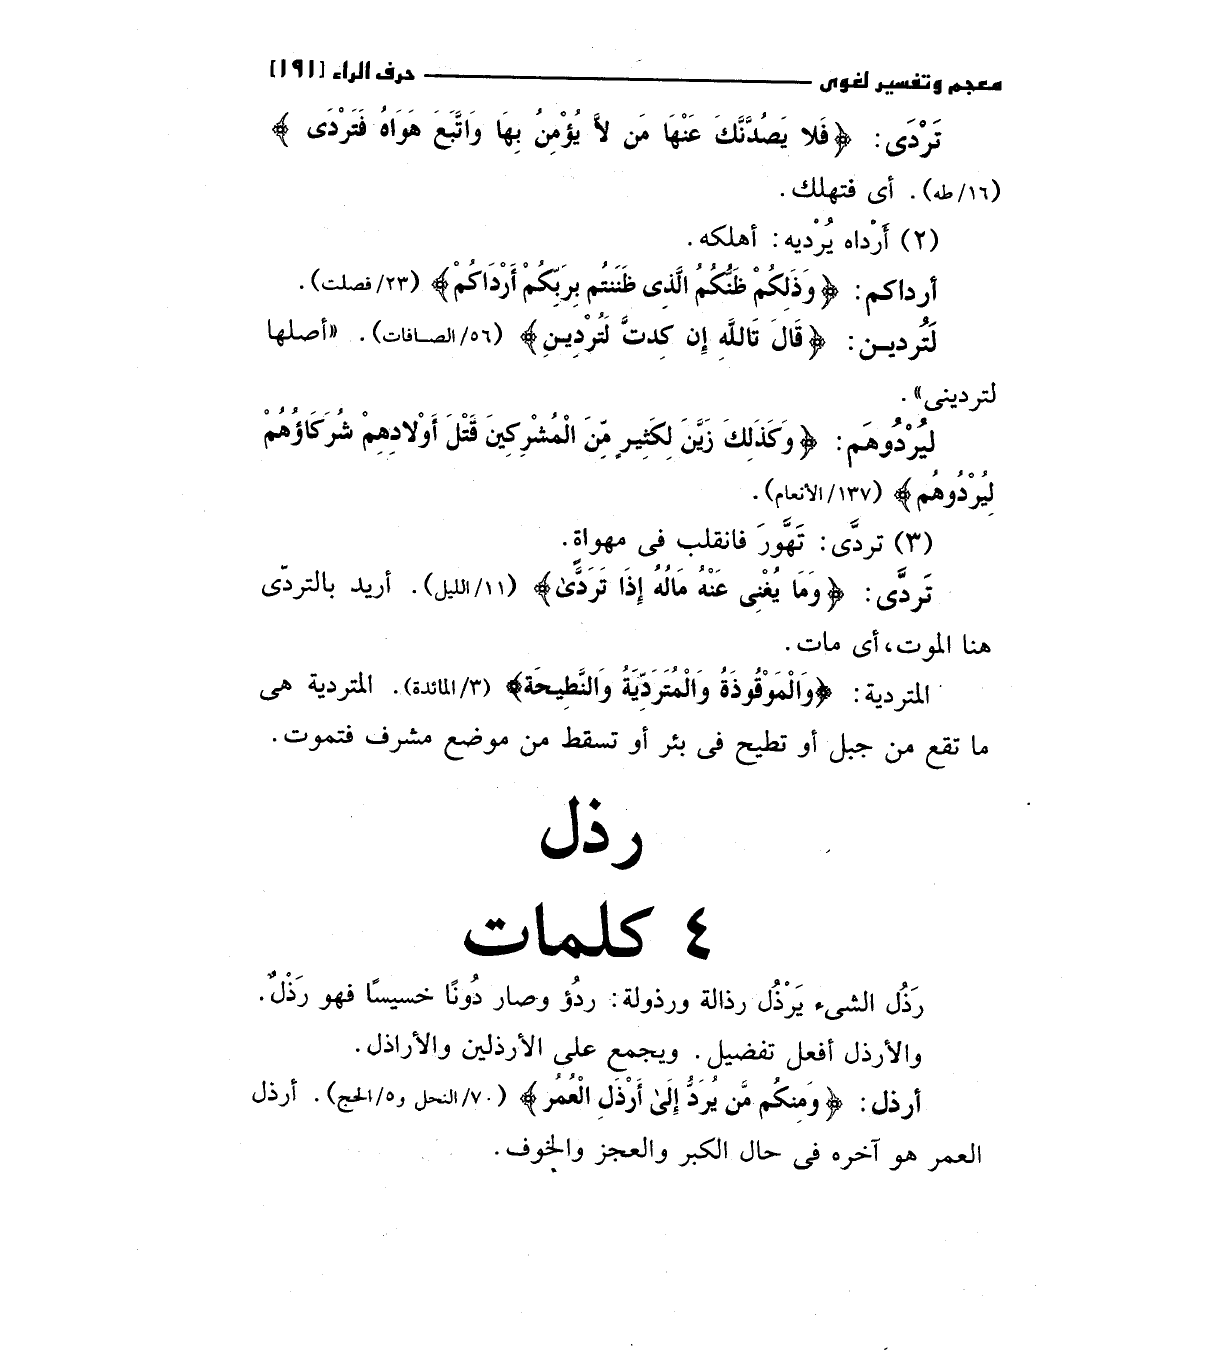 معجم وتفسير لغوى ــــــ حرف الراء [١٩١]
تَرْدَى: ﴿فَلا يَصُدَّنَّكَ عَنْهَا مَن لاَّ يُؤْمِنُ بِهَا وَاتَّبَعَ هَوَاهُ فَتَرْدَى ﴾
(١٦/طه). أى فتهلك.
(٢) أَرْداه يُرْديه: أهلكه.
أرداكم: ﴿وَذَلِكُمْ ظَنُّكُمُ الَّذِى ظَنَنتُم بِرَبِّكُمْ أَرْدَاكُمْ﴾ (٢٣/فصلت).
لَتُرديـن: ﴿قَالَ تَاللَّهِ إِن كِدتَّ لَتُرْدِينِ﴾ (٥٦/الصافات). «أصلها
لتردينى».
ليُرْدُوهَم: ﴿وَكَذَلِكَ زَيَّنَ لِكَثِيرٍ مِّنَ الْمُشْرِكِينَ قَتْلَ أَوْلادِهِمْ شُرَكَاؤُهُمْ
لِيُرْدُوهُم﴾ (١٣٧/الأنعام).
(٣) تردَّى: تَهَّورَ فانقلب فى مهواةٍ.
تَردَّى: ﴿وَمَا يُغْنِى عَنْهُ مَالُهُ إِذَا تَرَدَّىٰ﴾ (١١/الليل). أريد بالتردّى
هنا الموت،أى مات.
المتردية: ﴿وَالْمَوْقُوذَةُ وَالْمُتَرَدِّيَةُ وَالنَّطِيحَة﴾ (٣/المائدة). المتردية هى
ما تقع من جبل أو تطيح فى بئر أو تسقط من موضع مشرف فتموت.
رذل
٤ كلمات
رَذُل الشىء يَرْذُل رذالة ورذولة: ردُؤ وصار دُونًا خسيسًا فهو رَذْلٌ.
والأرذل أفعل تفضيل. ويجمع على الأرذلين والأراذل.
أرذل: ﴿وَمِنكُم مَّن يُرَدُّ إِلَىٰ أَرْذَلِ الْعُمُرِ﴾ (٧٠/النحل و٥/الحج). أرذل
العمر هو آخره فى حال الكبر والعجز والخوف.